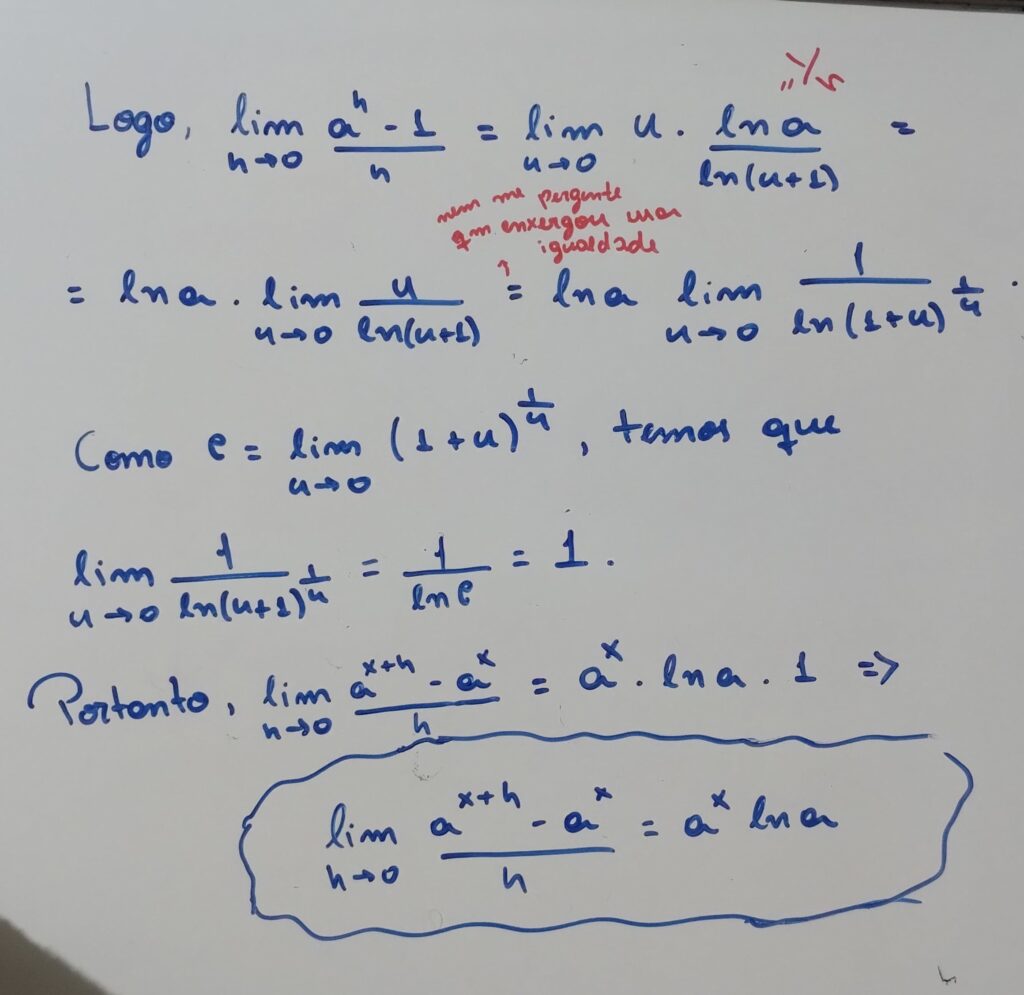 Logo, lim h→0 (a^h - 1)/h = lim u→0 u . ln a/ln(u+1) =
nem me pergunte
qm enxergou essa
igualdade
↑
= ln a . lim u→0 u/ln(u+1) = ln a lim u→0 1/ln(1+u)^(1/u) .
Como e = lim u→0 (1+u)^(1/u), temos que
lim u→0 1/ln(u+1)^(1/u) = 1/ln e = 1.
Portanto, lim h→0 (a^(x+h) - a^x)/h = a^x . ln a . 1 =>
lim h→0 (a^(x+h) - a^x)/h = a^x ln a